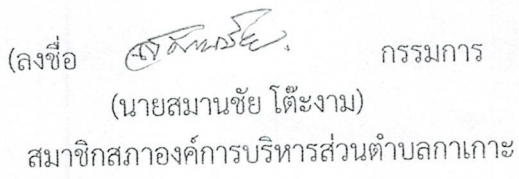 (ลงชื่อ กรรมการ
(นายสมานชัย โต๊ะงาม)
สมาชิกสภาองค์การบริหารส่วนตำบลกาเกาะ